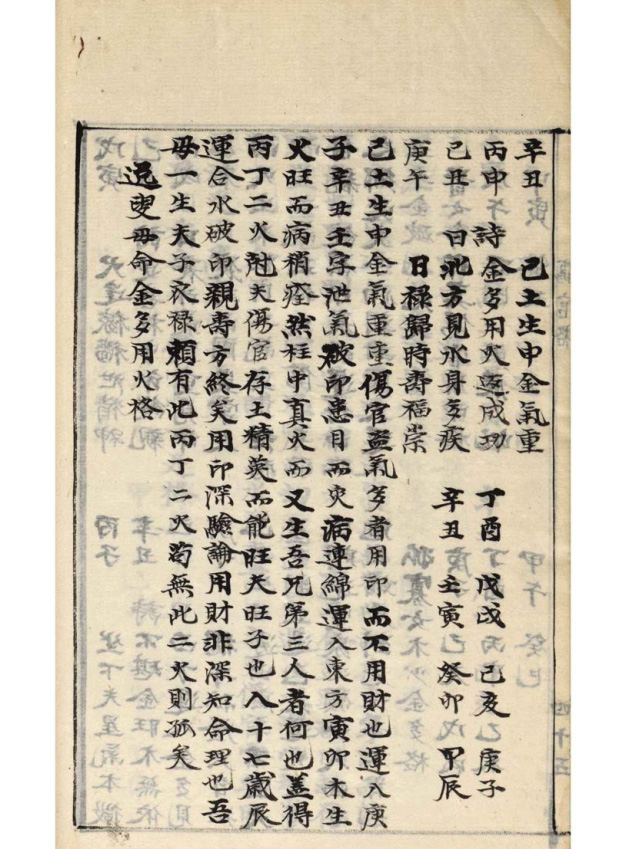 辛丑　己土生申金氣重
丙申　詩　金多用火運成功　丁酉　戊戌　己亥　庚子
己丑　曰　北方見水身多疾　辛丑　壬寅　癸卯　甲辰
庚午　日祿歸時壽福崇
己土生申金氣重重傷官盜氣多者用印而不用財也運入庚
子辛丑壬字泄氣破印患目而灾病連綿運入東方寅卯木生
火旺而病稍痊然柱中真火而又生吾兄第三人者何也蓋得
丙丁二火尅夫傷官存土精英而能旺夫旺子也八十七歲辰
運合水破印親壽方終矣用印深驗論用財非深知命理也吾
母一生夫子衣祿頼有此丙丁二火茍無此二火則孤矣
逸叟母命金多用火格